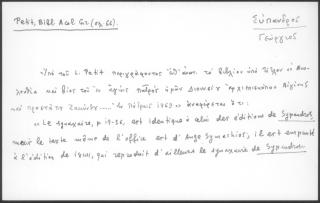 Petit, Bibl. Acol. Gr. (σχ. 66).
Σύπανδρος
Γεώργιος
Ὑπὸ τοῦ L. Petit περιγράφοντος τὸ βιβλίον ὑπὸ τίτλον «Ἀκο-
λουθία καὶ βίος τοῦ ἐν ἁγίοις πατρὸς ἡμῶν Διονυσίου ἀρχιεπισκόπου Αἰγίνης
καὶ προστάτου Ζακύνθου..... ἀναφέρεται ὅτι:
« Le synaxaire, p. 19-36, est identique à celui des éditions de Sypandros,
mais le texte même de l'office est d'Ange Symachios; il est emprunté
à l'édition de 1811, qui reproduit d'ailleurs le synaxaire de Sypandros.